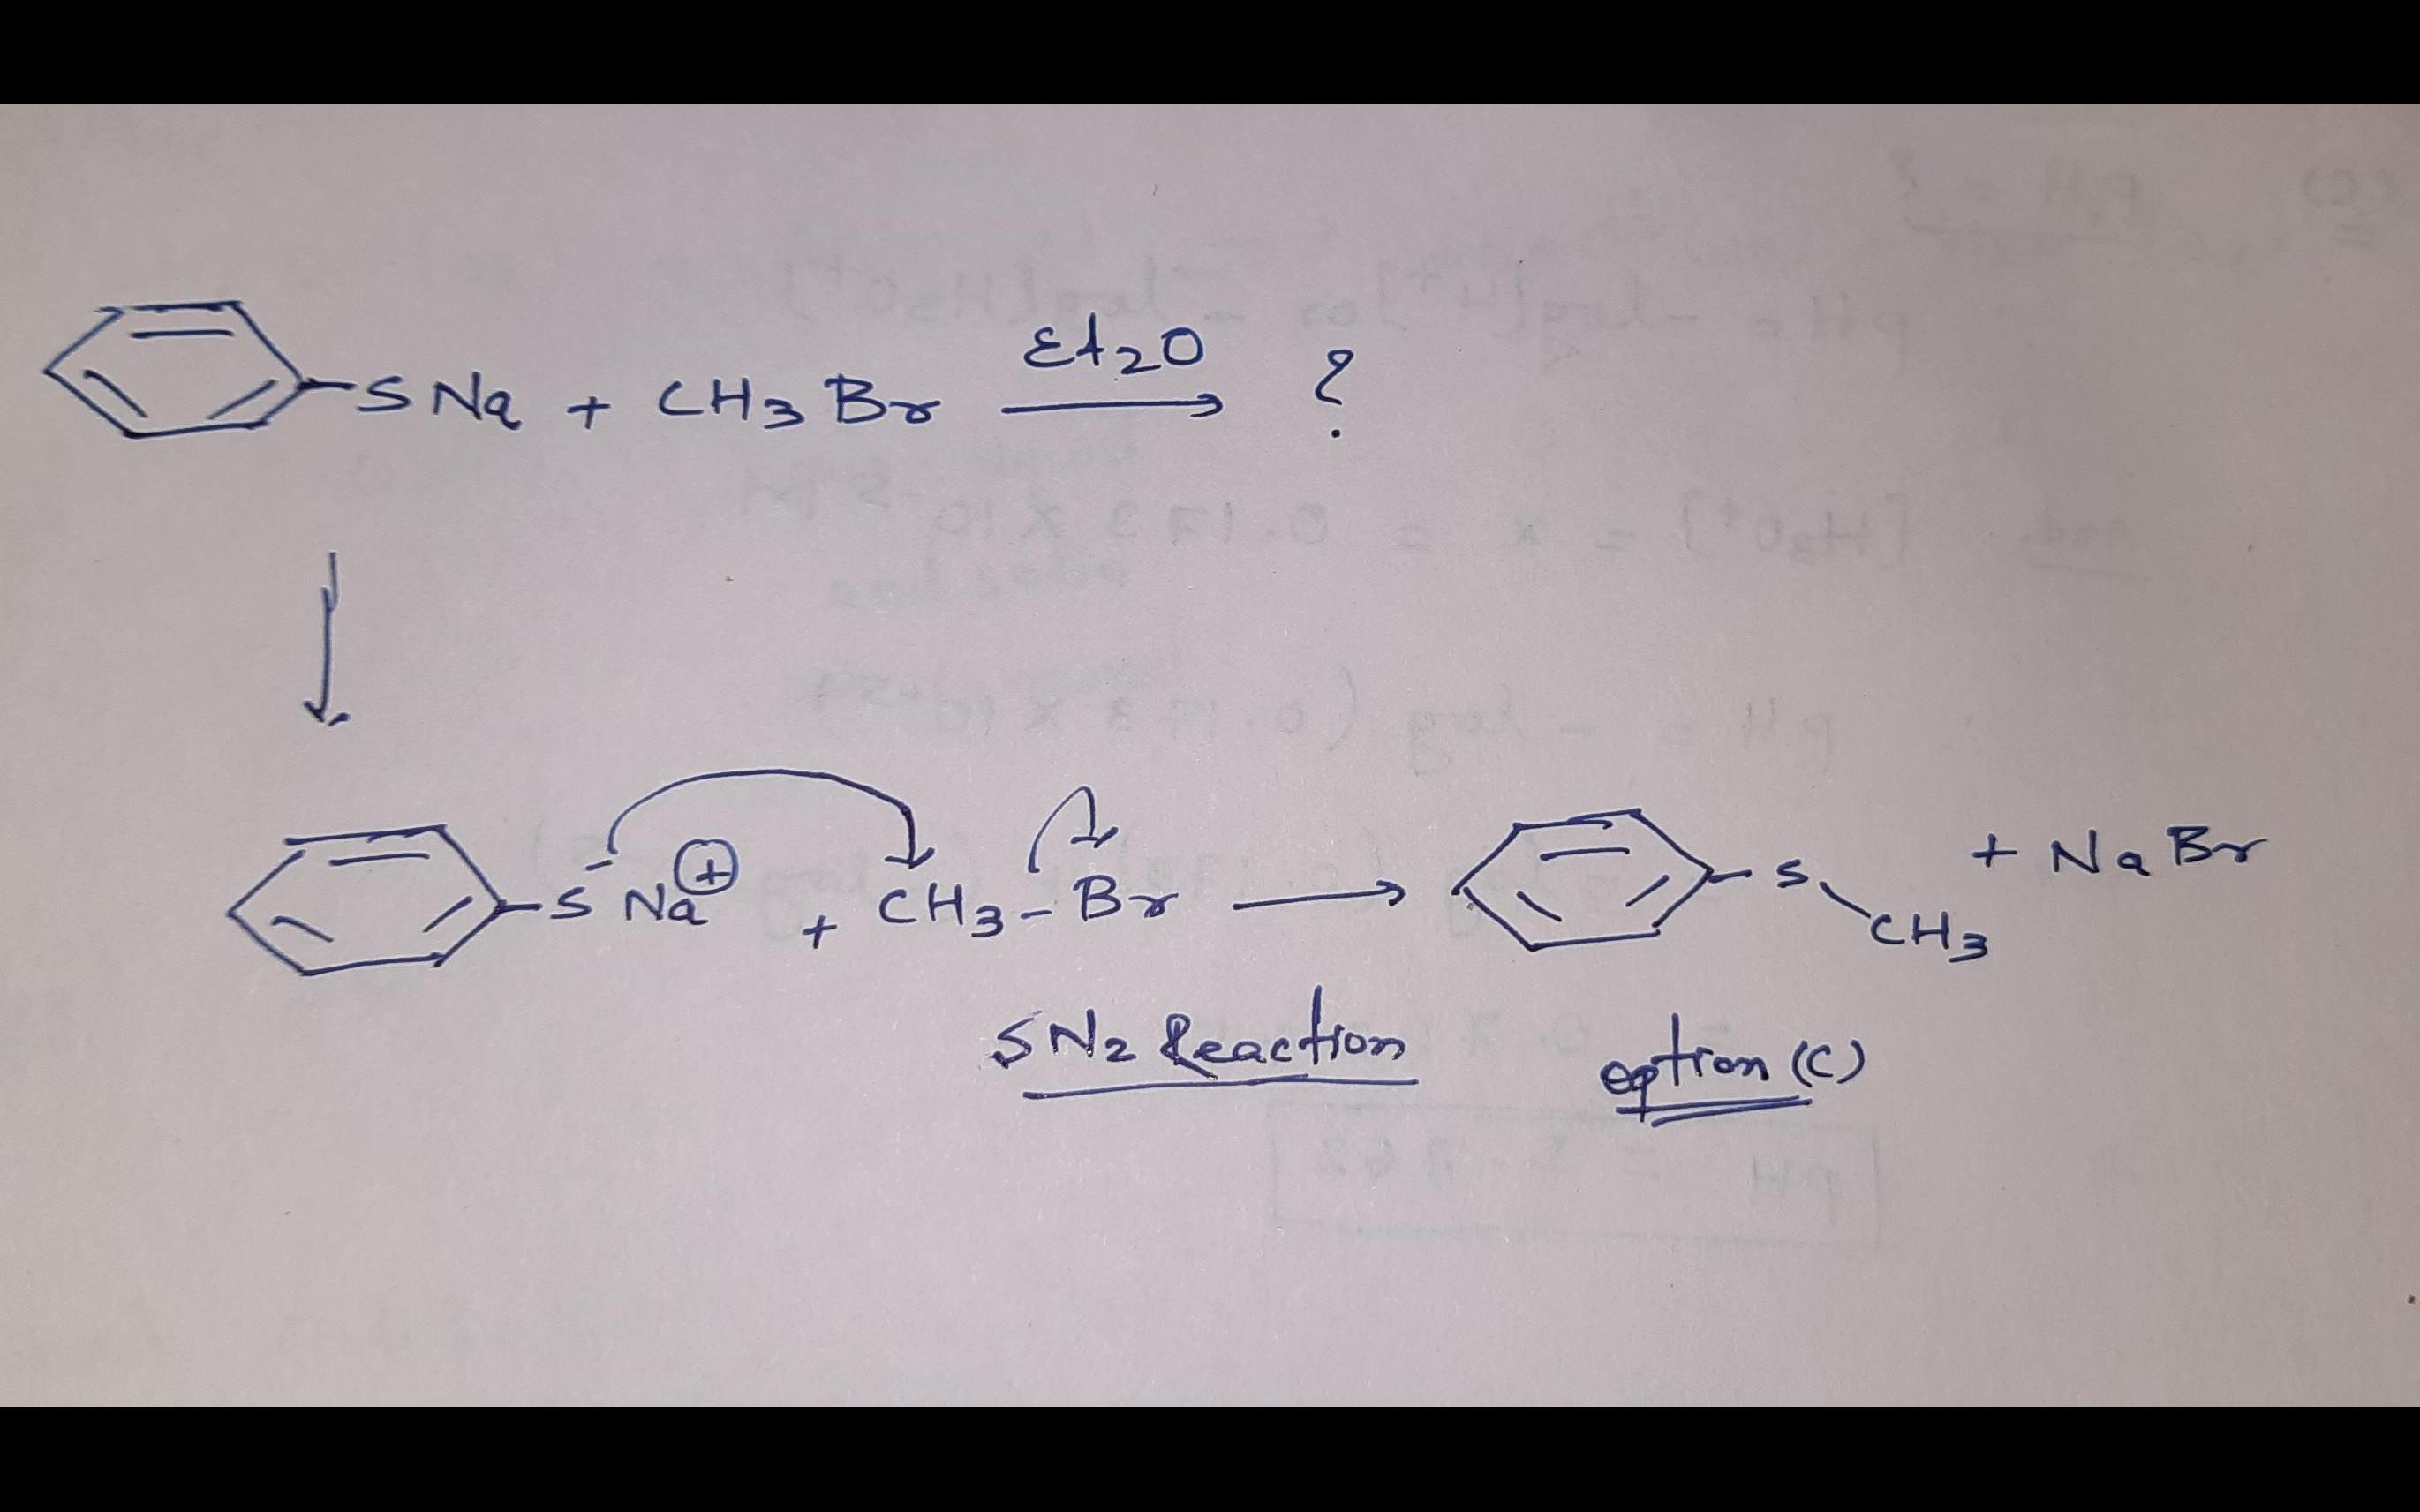 SNa + CH3Br Et2O → ?
S⁻ Na⊕ + CH3-Br → S CH3 + NaBr
SN2 Reaction option (C)